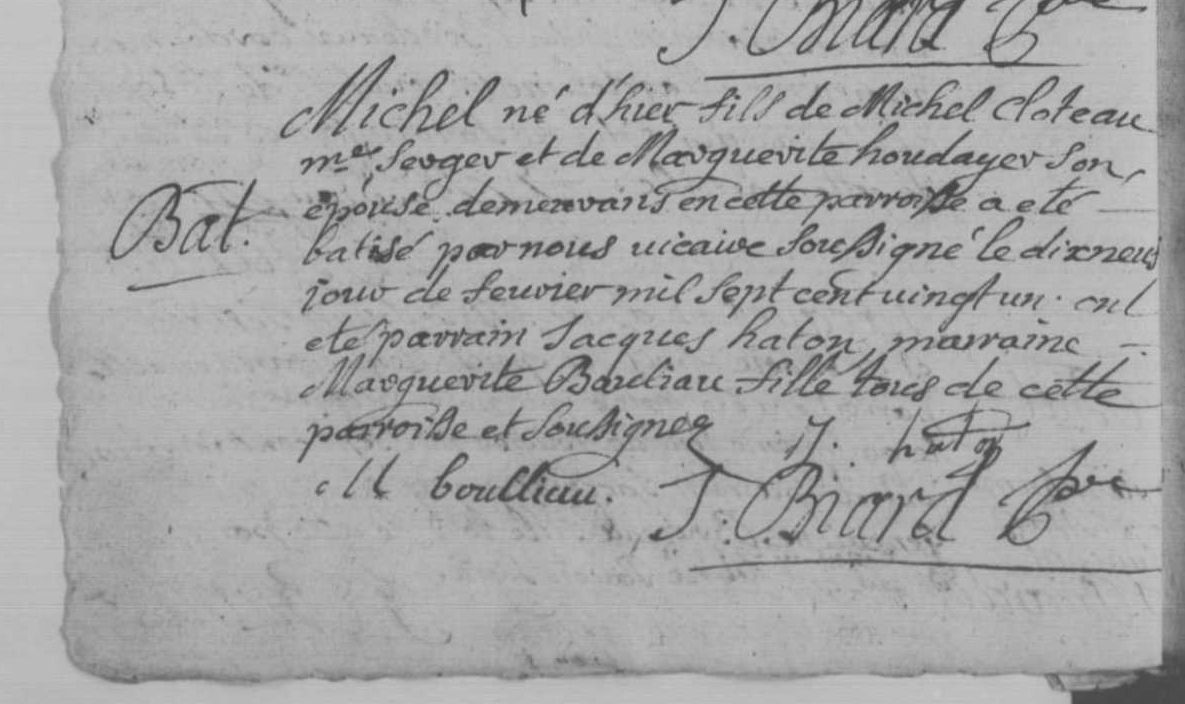 J. Biard Pbre
Michel né d'hier fils de Michel Cloteau
me. serger et de Marguerite houdayer son
épouse demeurans en cette parroisse a eté
Bat.
batisé par nous vicaire sousigné le dixneuf
jour de feuvrier mil sept cent vingt un. ont
eté parrain Jacques haton marraine
Marguerite Bauliau fille tous de cette
parroisse et sousignez J. haton
M boulliau. J. Biard Pbre